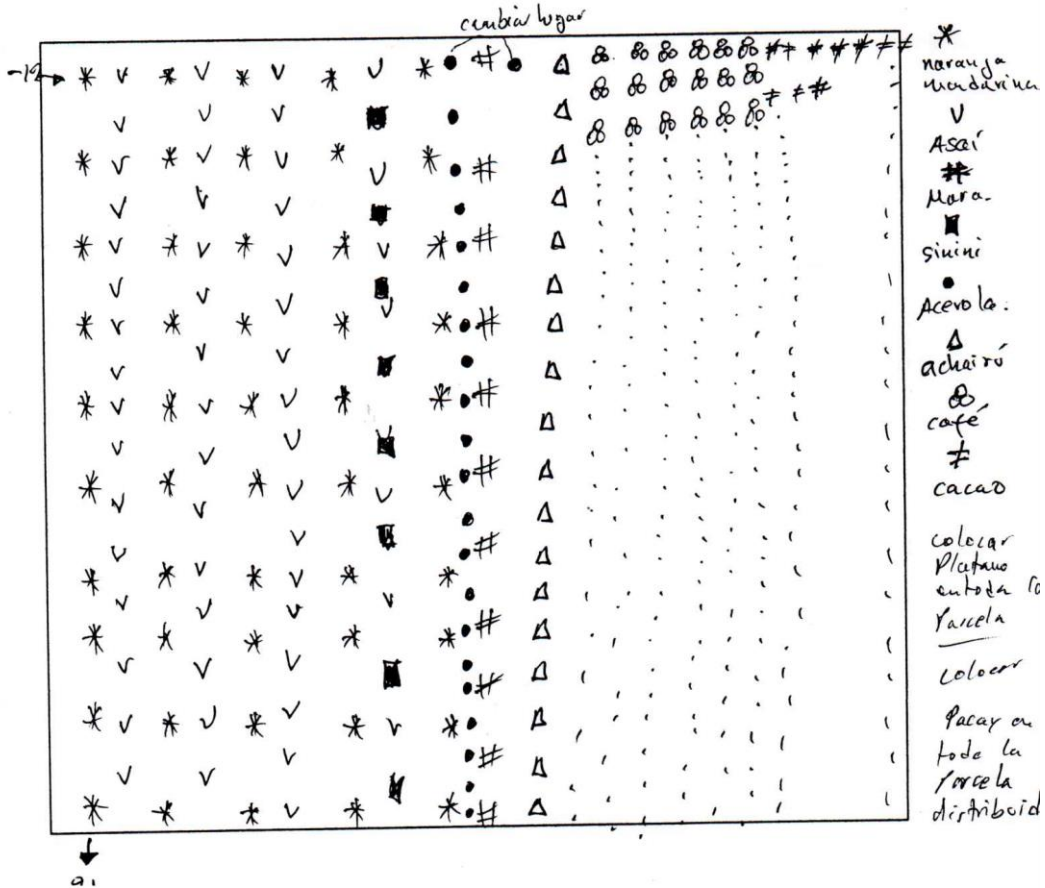 cambiar lugar
naranja
mandarina
Asaí
Mara.
sinini
Acerola.
achairú
café
cacao
colocar
Platano
en toda la
Parcela
colocar
Pacay en
toda la
Parcela
distribuid